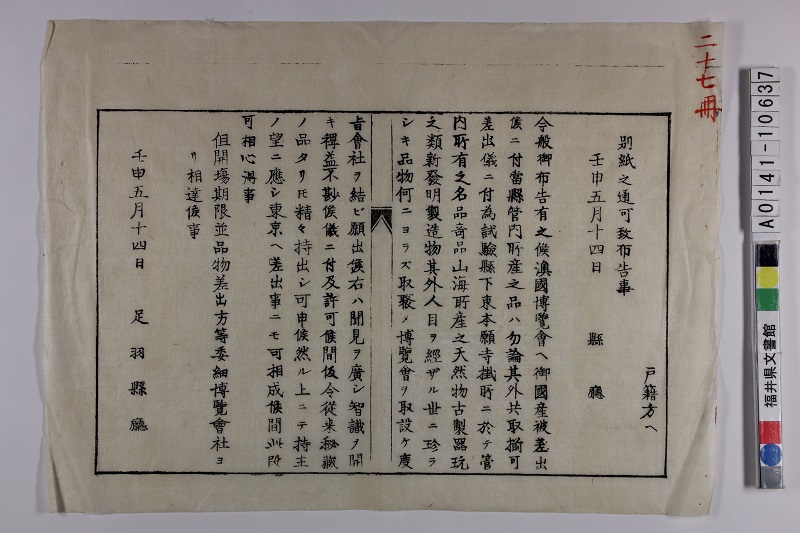 二十七冊
戸籍方ヘ
別紙之通可致布告事
壬申五月十四日　縣廳
今般御布告有之候澳國博覧會ヘ御國産被差出
候ニ付當縣管内所産之品ハ勿論其外共取揃可
差出儀ニ付為試驗縣下東本願寺掛所ニ於テ管
内所有之名品奇品山海所産之天然物古製器玩
之類新發明製造物其外人目ヲ經ザル世ニ珍ラ
シキ品物何ニヨラズ取聚メ博覧會ヲ取設ケ度
旨會社ヲ結ビ願出候右ハ聞見ヲ廣シ智識ヲ開
キ裨益不尠候儀ニ付及許可候間仮令従来秘蔵
ノ品タリ𪜈精々持出シ可申候然ル上ニテ持主
ノ望ニ應シ東京ヘ差出事ニモ可相成候間此段
可相心得事
但開場期限並品物差出方等委細博覧會社ヨ
リ相達候事
壬申五月十四日　足羽縣廳
A0141-10637
福井県文書館